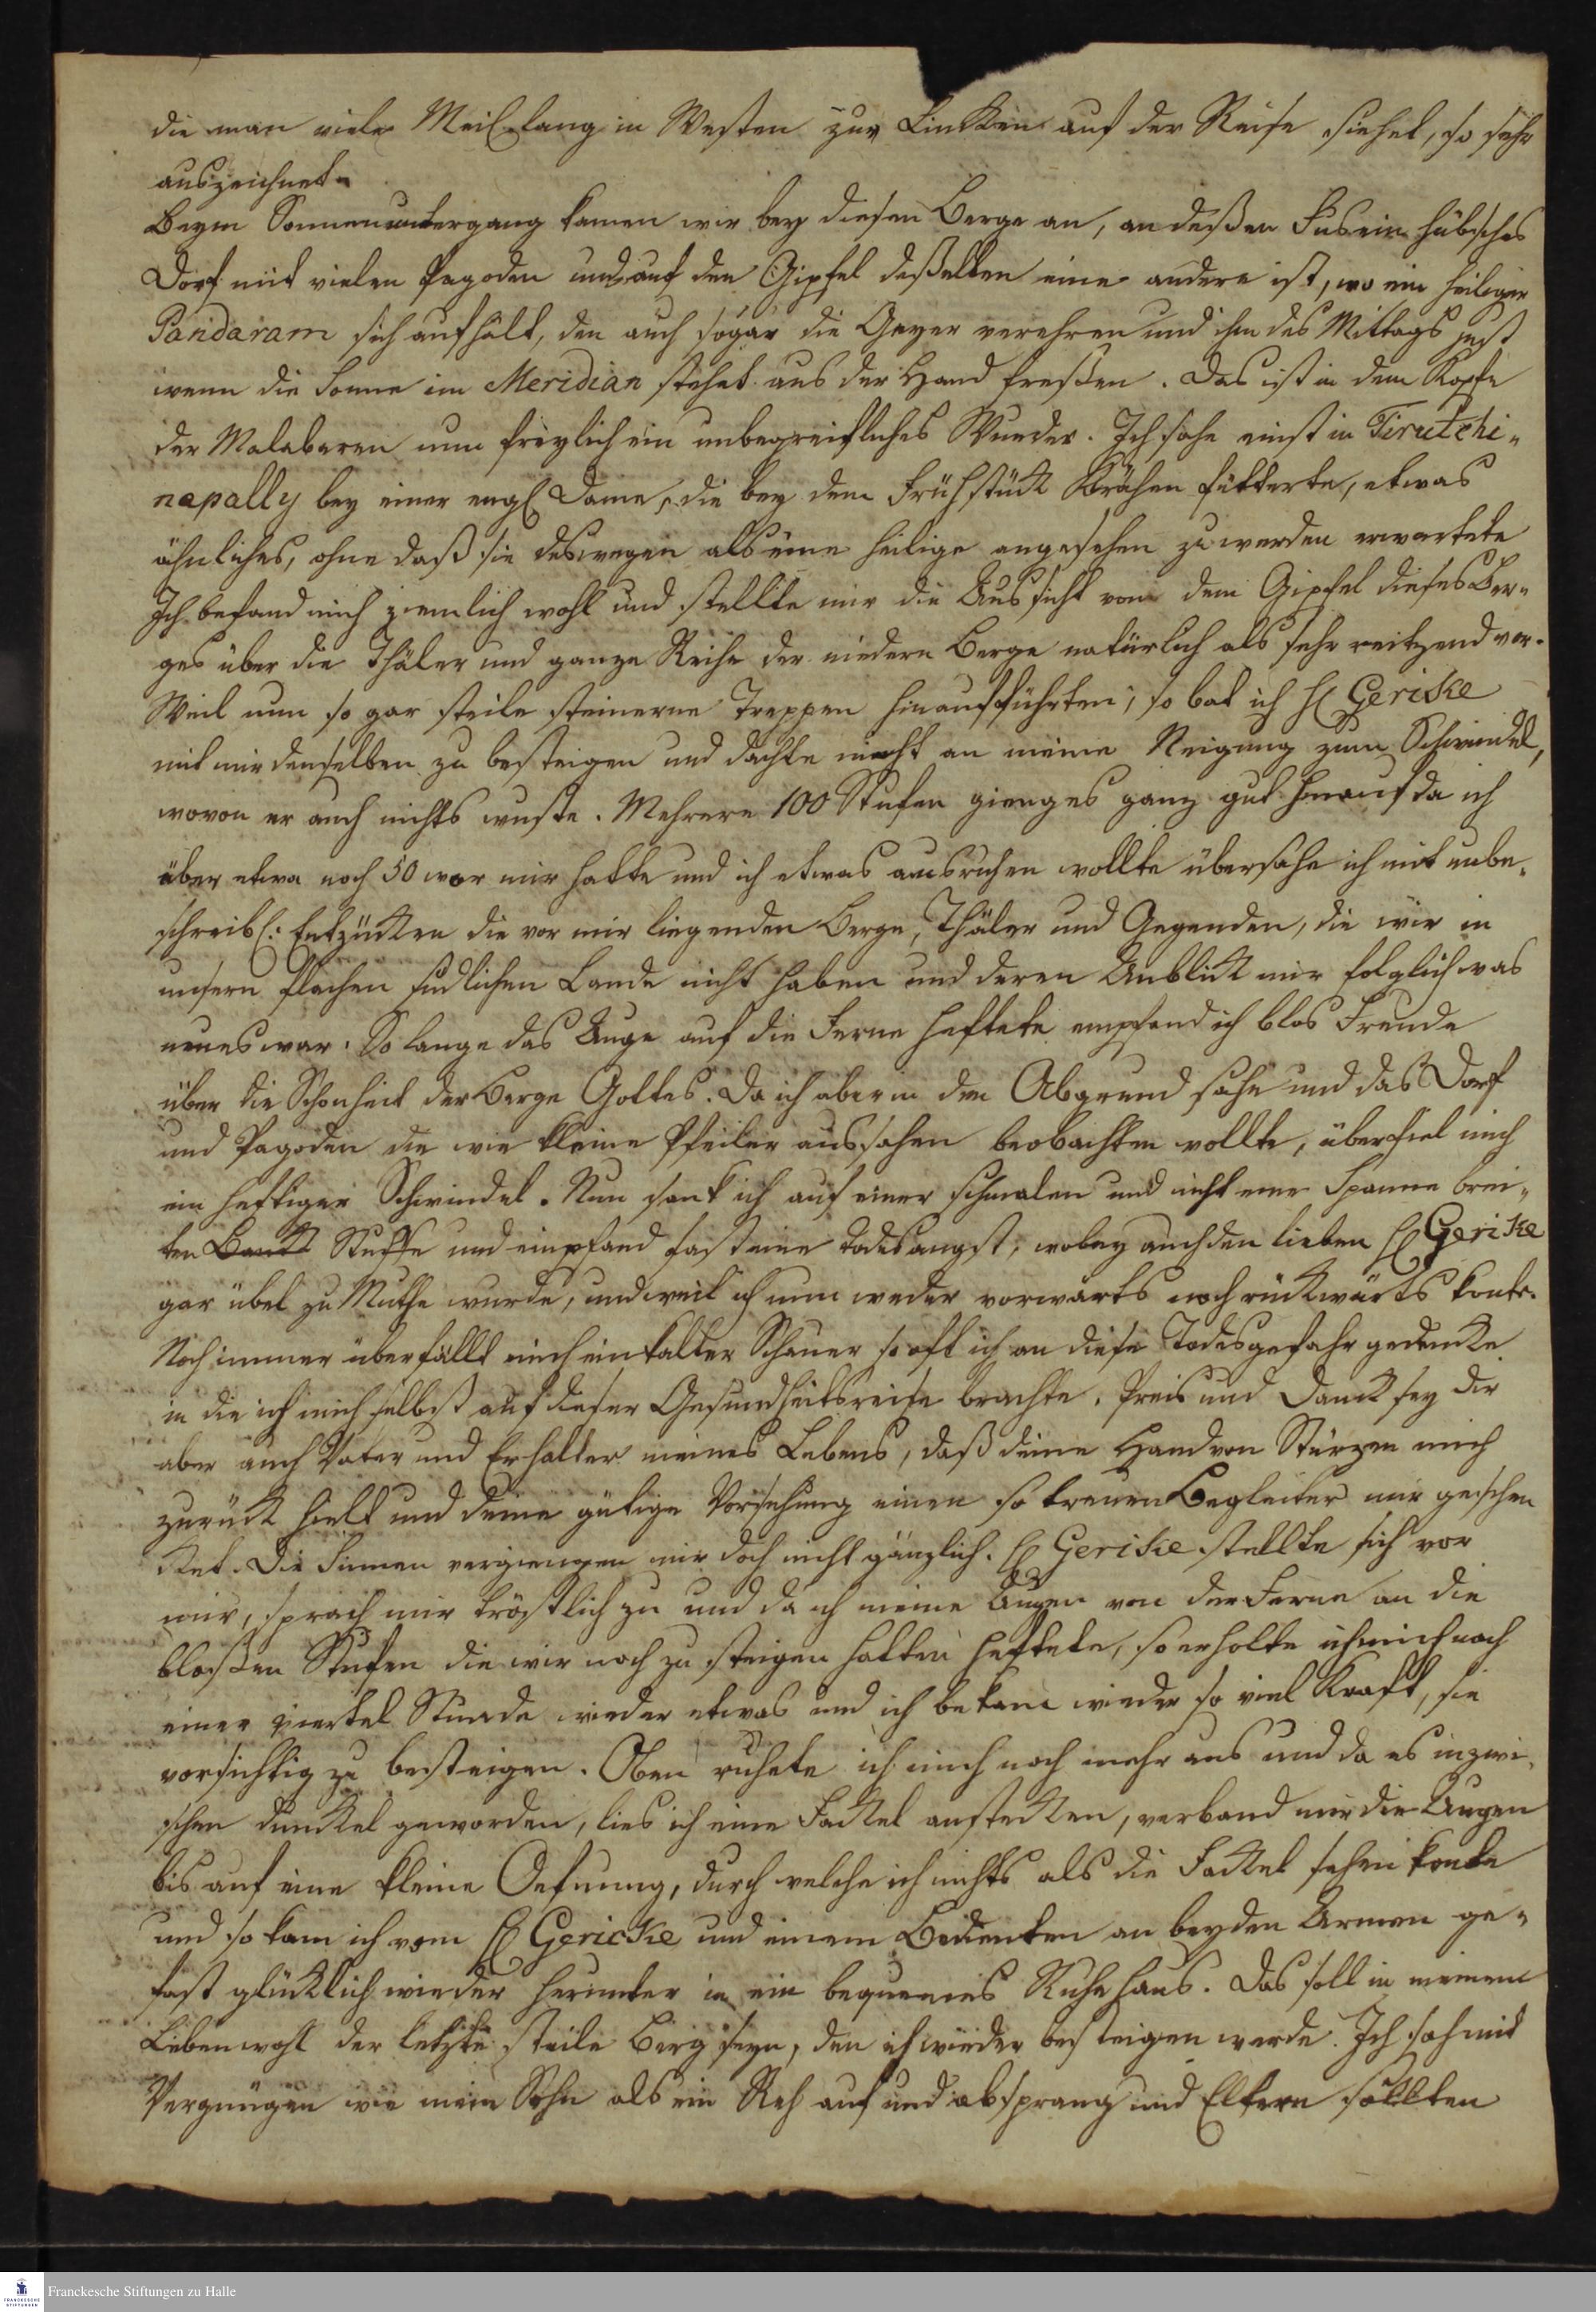 die man viele Meil. lang in Westen zur Lincken auf der Reise siehet, so sehr
auszeichnet.
Beym Sonnenuntergang kamen wir bey diesen Berge an, an deßen Fus ein hübsches
Dorf mit vielen Pagoden und auf den Gipfel deßelben eine andere ist, wo ein heiliger
Pandaram sich aufhält, den auch sogar die Geyer verehren und ihm des Mittags just
wenn die Sonne im Meridian stehet aus der Hand freßen. Das ist in dem Kopfe
der Malabaren nun freylich ein unbegreifliches Wunder. Ich sahe einst in Tirutchi-
napally bey einer engl. Dame, die bey dem Frühstück Krähen fütterte, etwas
ähnliches, ohne daß sie deswegen als eine heilige angesehen zu werden erwartete
Ich befand mich ziemlich wohl und stellte mir die Aussicht von dem Gipfel dieses Ber-
ges über die Thäler und ganze Reihe der niedern Berge natürlich als sehr reitzend vor.
Weil nun so gar steile steinerne Treppen hinaufführten; so bat ich H. Gerike
mit mir denselben zu besteigen und dachte nicht an meine Neigung zum Schwindel,
wovon er auch nichts wuste. Mehrere 100 Stufen gienges ganz gut hinauf da ich
aber etwa noch 50 vor mir hatte und ich etwas ausruhen wollte übersahe ich mit unbe-
schreibl: Entzücken die vor mir liegenden Berge, Thäler und Gegenden, die wir in
unsern flachen südlichen Lande nicht haben und deren Anblick mir folglich was
neues war. So lange das Auge auf die Ferne heftete empfand ich blos Freude
über die Schönheit der Berge Gottes. Da ich aber in den Abgrund sahe und das Dorf
und Pagoden die wie kleine Pfeiler aussahen beobachten wollte, überfiel mich
ein heftiger Schwindel. Nun sank ich auf einer schmalen und nicht eine Spanne brei-
ten Banck Stuffe und empfand fast eine todesangst, wobey auch den lieben H. Gerike
gar übel zu Muthe wurde, und weil ich nun weder vorwärts noch rückwärts konte.
Noch immer überfällt mich ein kalter Schauer so oft ich an diese Todesgefahr gedencke
in die ich mich selbst auf dieser Gesundheitsreise brachte. Preis und Danck sey dir
aber auch Vater und Erhalter meines Lebens, daß deine Hand von Stürzen mich
zurück hielt und deine gütige Vorsehung einen so treuen Begleiter mir geschen
cket. Die Sinnen vergiengen mir doch nicht gänzlich. H. Gerike stellte sich vor
mir, sprach mir tröstlich zu und da ich meine Augen von der Ferne an die
bloßen Stufen die wir noch zu steigen hatten heftete, so erholte ich mich nach
einer viertel Stunde wieder etwas und ich bekam wieder so viel Kraft, sie
vorsichtig zu besteigen. Oben ruhete ich mich noch mehr aus und da es inzwi-
schen dunckel geworden, lies ich eine Fackel anstecken, verband mir die Augen
bis auf eine kleine Oefnung, durch welche ich nichts als die Fackel sehen konte
und so kam ich vom H. Gericke und einem Bedienten an beyden Armen ge-
fast glücklich wieder herunter in ein bequemes Ruhehaus. Das soll in meinem
Leben wohl der letzte steile Berg seyn, den ich wieder besteigen werde. Ich sah mit
Vergnügen wie mein Sohn als ein Reh auf und absprang und Eltern sollten
Franckesche Stiftungen zu Halle